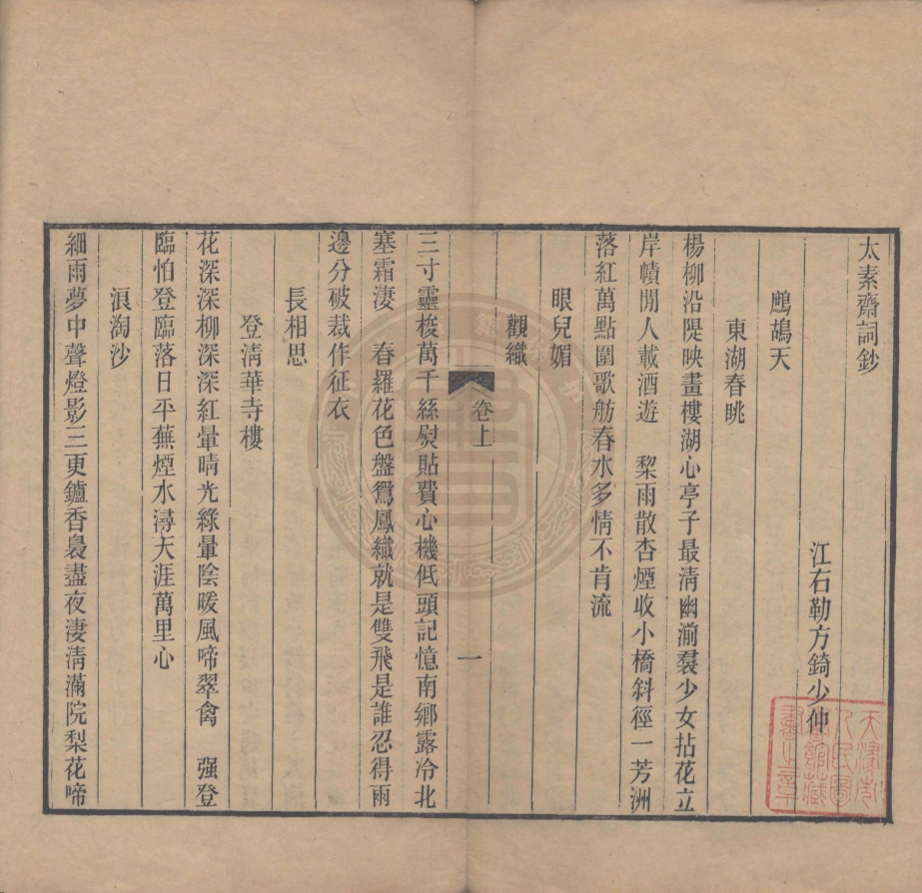 太素齋詞鈔
江右勒方錡少仲
鷓鴣天
東湖春眺
楊柳沿隄映畫樓湖心亭子最淸幽湔裠少女拈花立
岸幘閒人載酒遊　棃雨散杏煙收小橋斜徑一芳洲
落紅萬點圍歌舫春水多情不肯流
眼兒媚
觀織
卷上
一
三寸靈梭萬千絲熨貼費心機低頭記憶南鄉露冷北
塞霜淒　春羅花色盤鴛鳳織就是雙飛是誰忍得雨
邊分破裁作征衣
長相思
登淸華寺樓
花深深柳深深紅暈晴光綠暈陰暖風啼翠禽　强登
臨怕登臨落日平蕪煙水潯天涯萬里心
浪淘沙
細雨夢中聲燈影三更鑪香裊盡夜淒淸滿院梨花啼
天津市
人民圖
書館藏
書之章